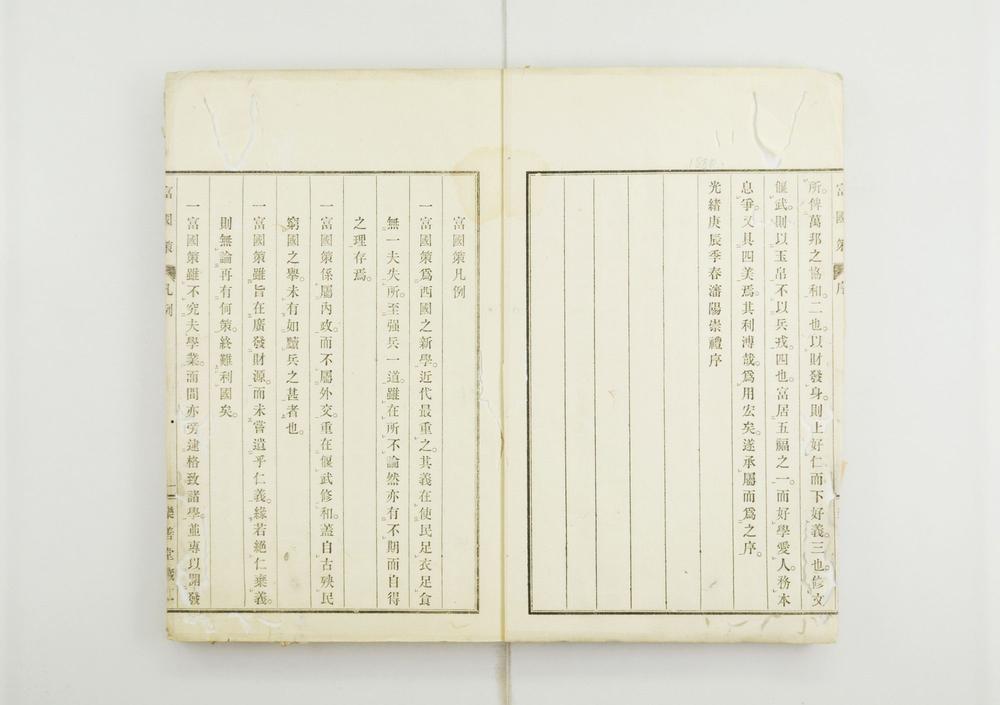 所俾萬邦之恊和。二也。以財發身。則上好仁而下好義。三也。修文
偃武。則以玉帛不以兵戎。四也。富居五福之一。而好學愛人。務本
息爭。又具四美焉。其利溥哉。爲用宏矣。遂承屬而爲之序。
光緒庚辰季春瀋陽崇禮序
富國策凡例
一富國策爲西國之新學。近代最重之。其義在使民足衣足食
無一夫失所。至强兵一道。雖在所不論。然亦有不期而自得
之理存焉。
一富國策係屬內政。而不屬外交。重在偃武修和。蓋自古殃民
窮國之舉。未有如黷兵之甚者也。
一富國策雖旨在廣發財源。而未嘗遺乎仁義。緣若絕仁棄義。
則無論再有何策。終難利國矣。
一富國策雖不究夫學業。而間亦旁逮格致諸學。並專以開發
富國策 凡例
1880